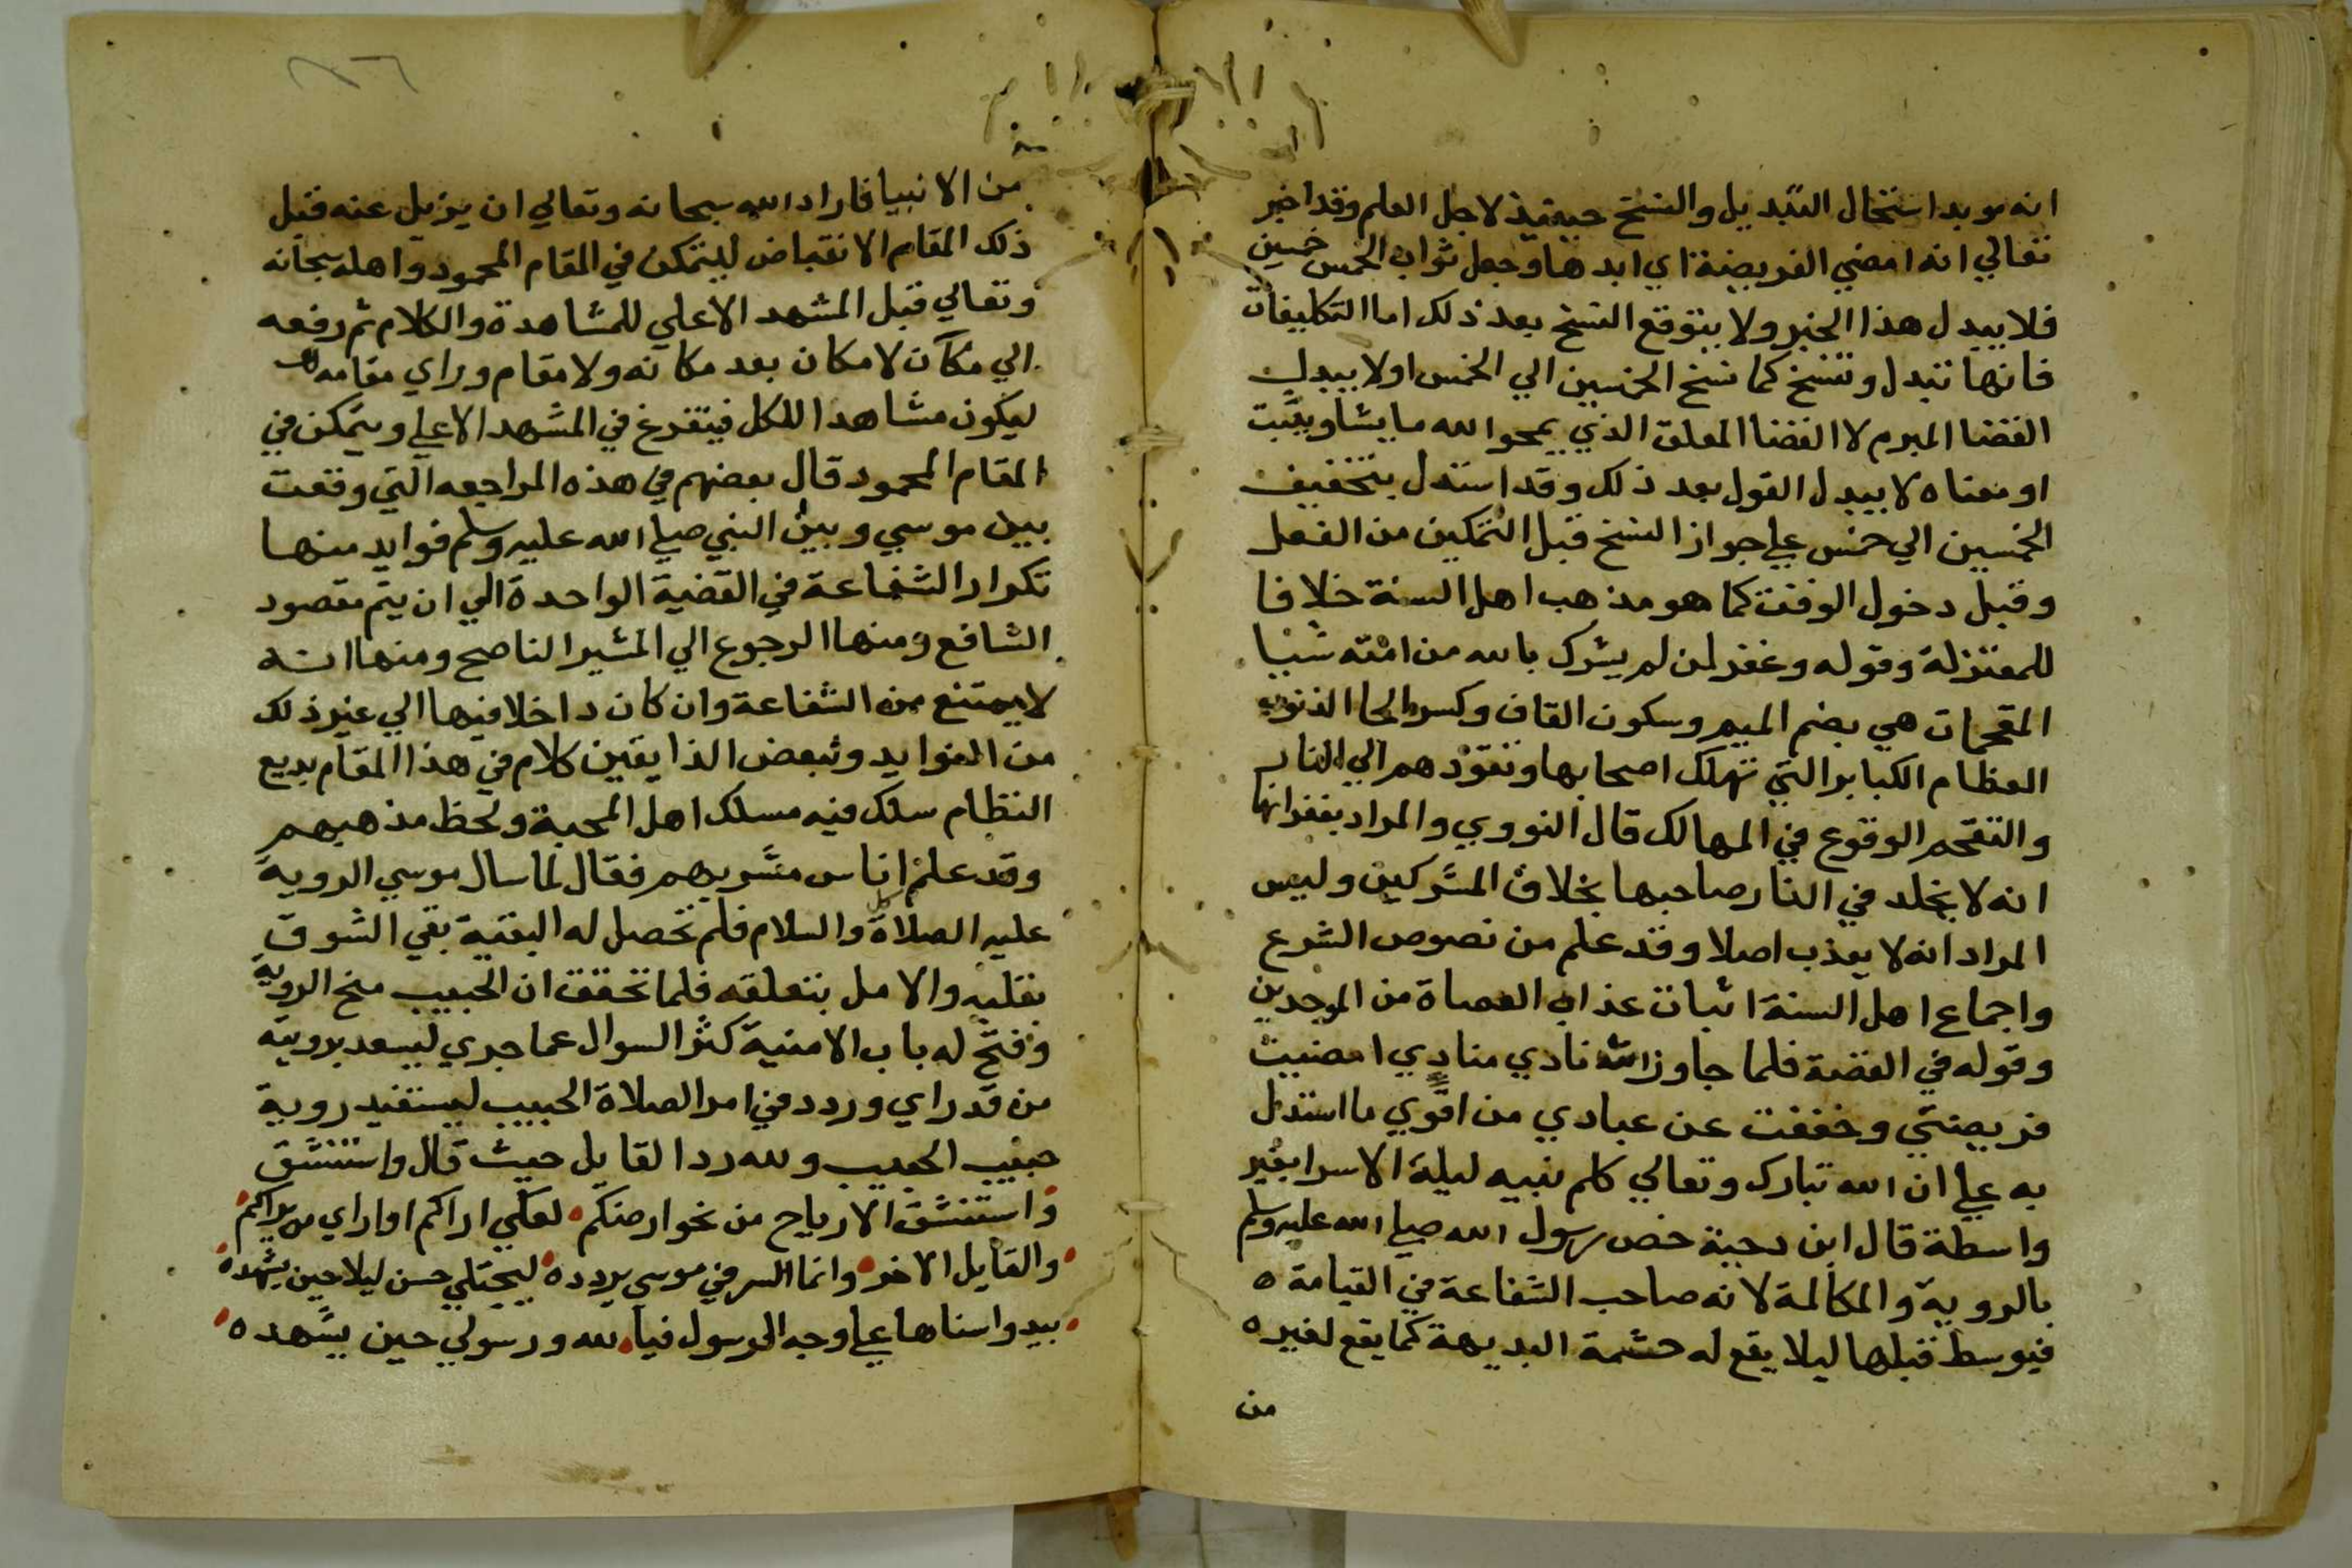 انه موبد استحال التبديل والنسخ حينيذ لاجل العلم وقد اخبر
تعالي انه امضي الفريضة اي ابدها وجعل ثواب الخمس خمسين
فلا يبدل هذا الخبر ولا يتوقع النسخ بعد ذلك اما التكليفات
فانها تتبدل وتنسخ كما نسخ الخمسين الي الخمس او لا يبدل
القضا المبرم لا القضا المعلق الذي يمحوا الله ما يشا ويثبت
او معناه لا يبدل القول بعد ذلك وقد استدل بتخفيف
الخمسين الي خمس علي جواز النسخ قبل التمكين من الفعل
وقبل دخول الوقت كما هو مذهب اهل السنة خلافا
للمعتزلة وقوله وغفر لمن لم يشرك بالله من امته شيا
المقحمات هي بضم الميم وسكون القاف وكسر الحا الذنوب
العظام الكباير التي تهلك اصحابها وتقودهم الي النار
والتقحم الوقوع في المهالك قال النووي والمراد بغفرانها
انه لا يخلد في النار صاحبها بخلاف المشركين وليس
المراد انه لا يعذب اصلا وقد علم من نصوص الشرع
واجماع اهل السنة اثبات عذاب العصاة من الموحدين
وقوله في القصة فلما جاوزته نادي منادي امضيت
فريضتي وخففت عن عبادي من اقوي ما استدل
به علي ان الله تبارك وتعالي كلم نبيه ليلة الاسرا بغير
واسطة قال ابن دحية خص رسول الله صلي الله عليه وسلم
بالروية والمكالمة لانه صاحب الشفاعة في القيامة ه
فيوسط قبلها ليلا يقع له حشمة البديهة كما يقع لغيره
من
من الانبيا فاراد الله سبحانه وتعالي ان يزيل عنه قبل
ذلك المقام الانقباض ليتمكن في المقام المحمود واهله سبحانه
وتعالي قبل المشهد الاعلي للمشاهدة والكلام ثم رفعه
الي مكان لا مكان بعد مكانه ولا مقام وراي مقامه
ليكون مشاهدا للكل فيتفرغ في المشهد الاعلي ويتمكن في
المقام المحمود قال بعضهم في هذه المراجعه التي وقعت
بين موسي وبين النبي صلي الله عليه وسلم فوايد منها
تكرار الشفاعة في القضية الواحدة الي ان يتم مقصود
الشافع ومنها الرجوع الي المشير الناصح ومنها انه
لا يمتنع من الشفاعة وان كان داخلا فيها الي غير ذلك
من الفوايد ولبعض الذايقين كلام في هذا المقام بديع
النظام سلك فيه مسلك اهل المحبة ولحظ مذهبهم
وقد علم اناس مشربهم فقال لما سال موسي الروية
عليه الصلاة والسلام فلم تحصل له البغية بقي الشوق
يقلبه والامل يتعلقه فلما تحقق ان الحبيب منح الروية
وفتح له باب الامنية كثر السوال عما جري ليسعد بروية
من قد راي وردد في امر الصلاة الحبيب ليستفيد روية
حبيب الحبيب ولله در القايل حيث قال واستنشق
واستنشق الارياح من نحو ارضكم لعلي اراكم او اراي من يراكم
والقايل الاخر وانما السر في موسي يردده ليجتلي حسن ليلا حين يشهده
يبدوا سناها علي وجه الرسول فيا لله در رسولي حين يشهده